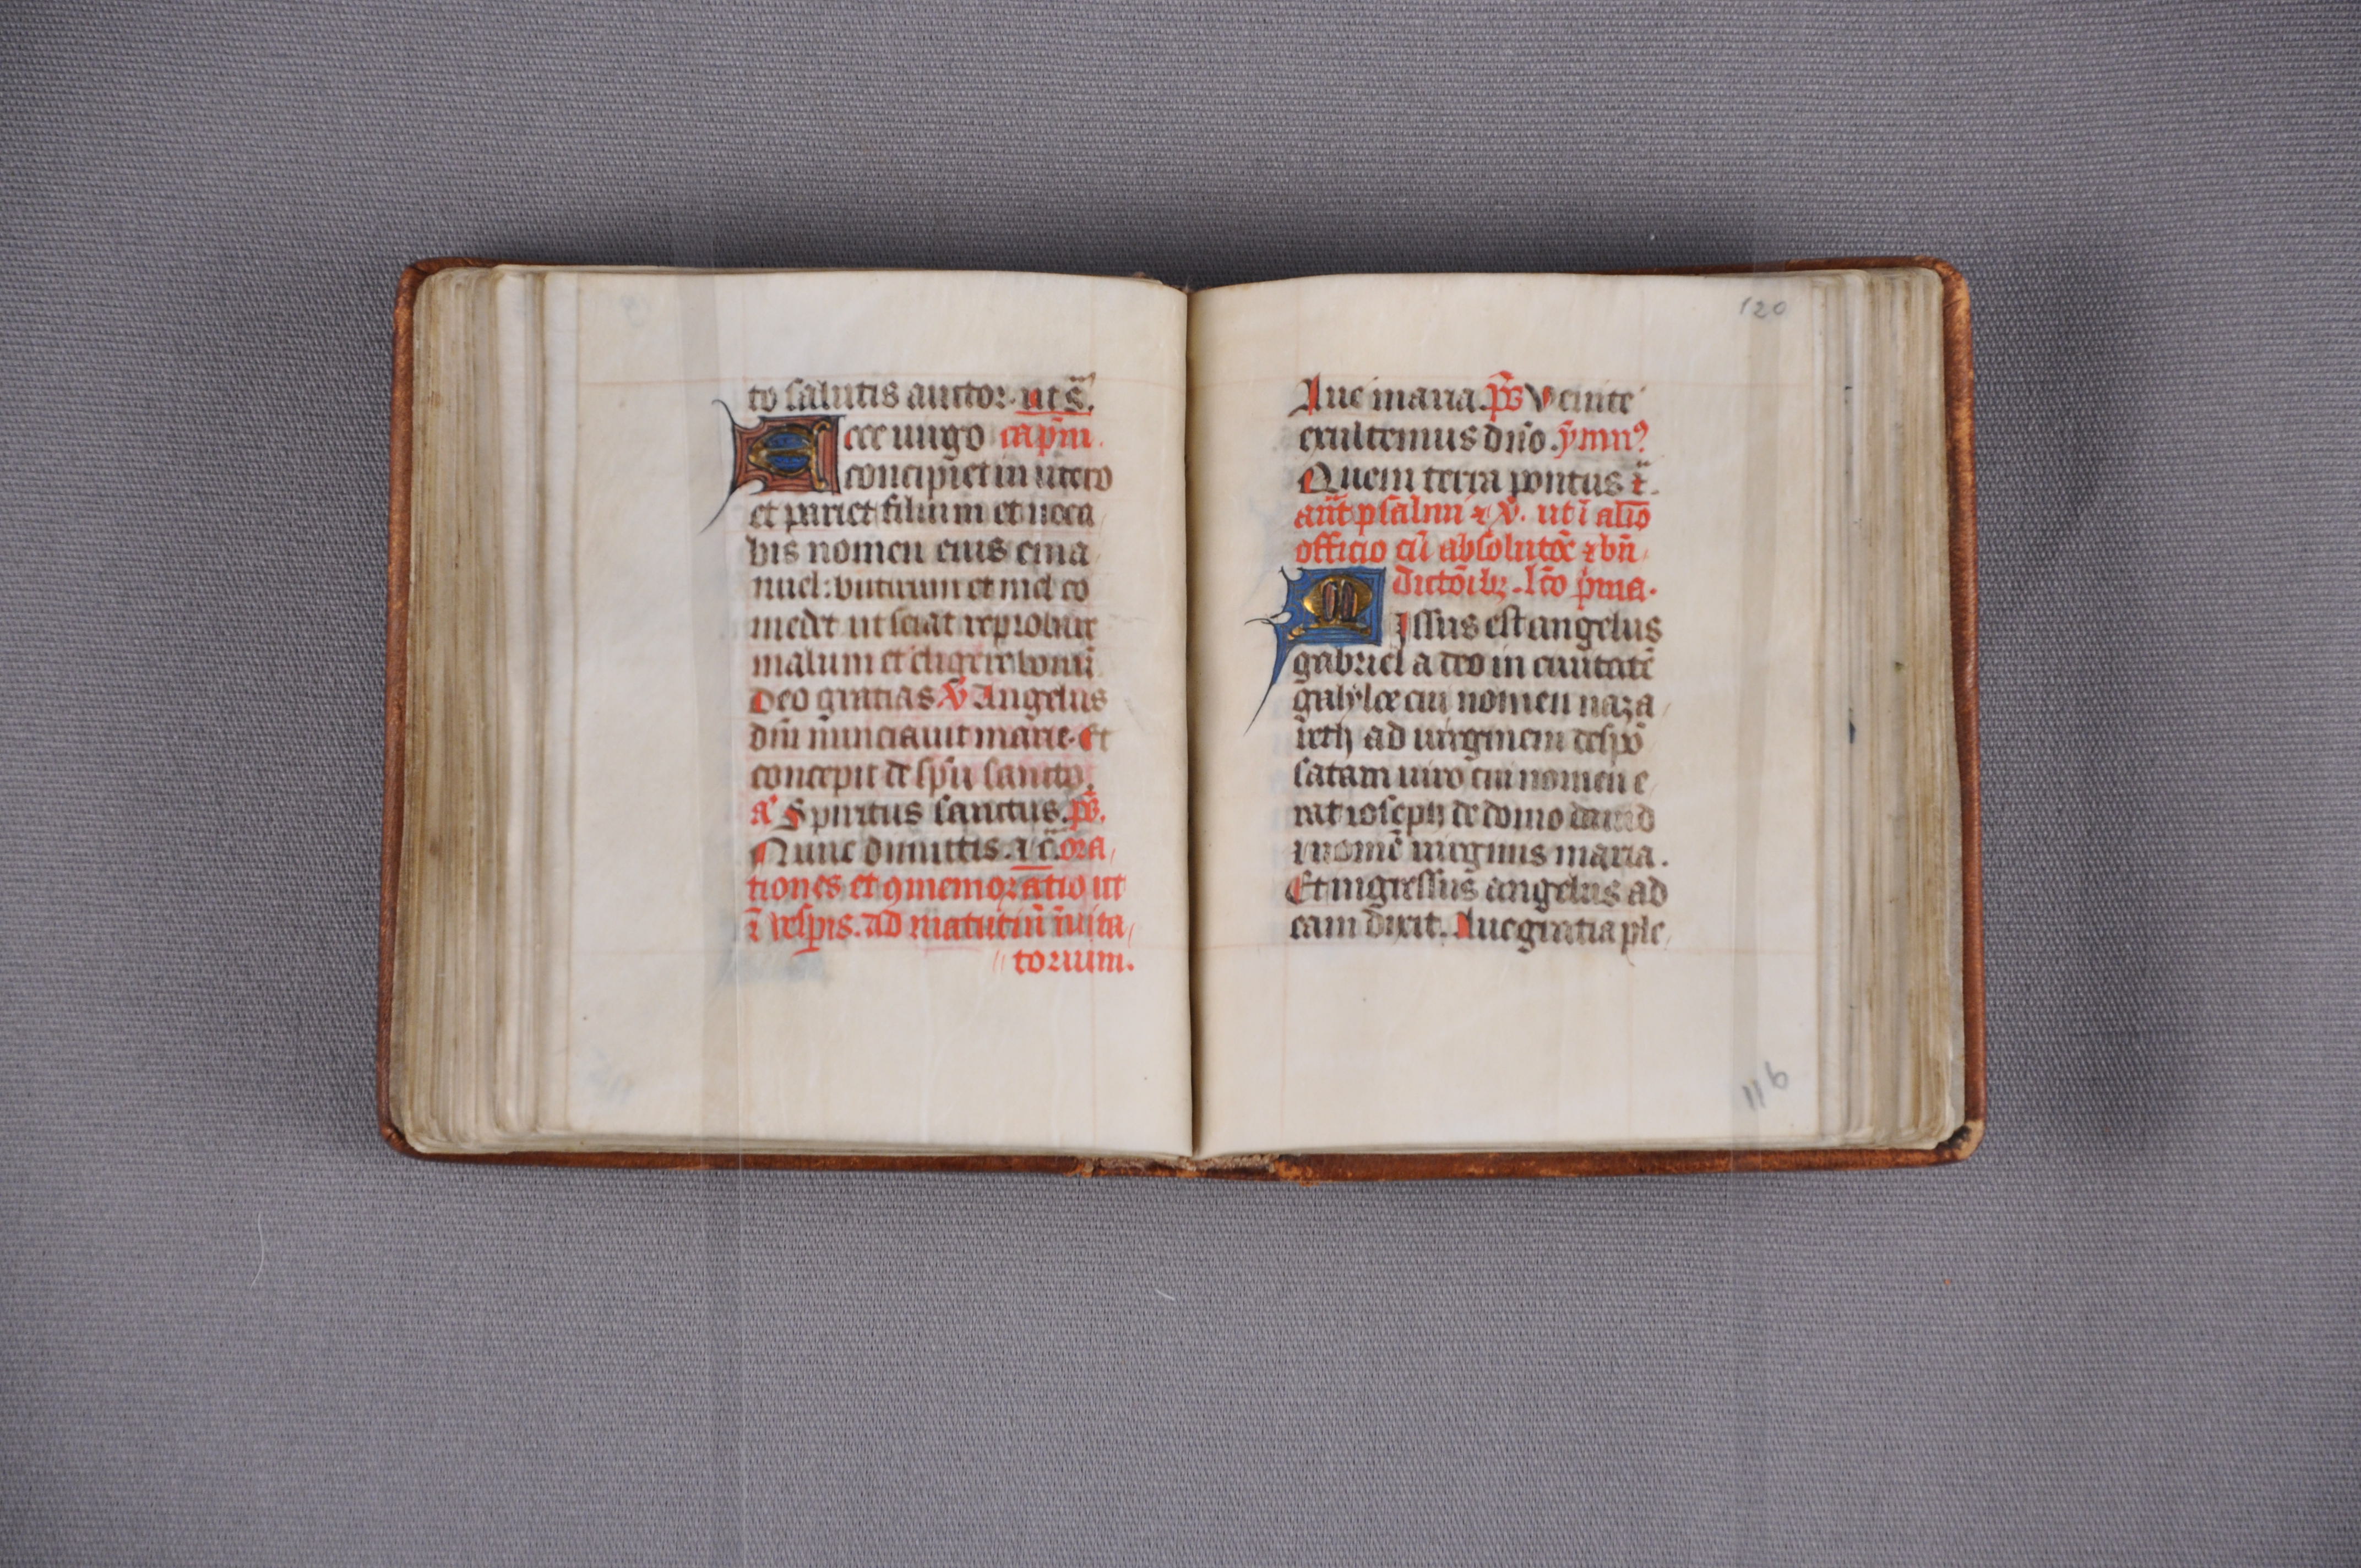 to salutis auctor. ut s̄.
Ecce uirgo cap̄m.
concipiet in utero
et pariet filium et uoca
bis nomen eius ema
nuel: butirum et mel co
medet ut sciat reprobare
malum et eligere bonū
Deo gratias ℣ Angelus
dn̄i nunciauit marie. Et
concepit de sp̄u sancto.
a᷎ Spiritus sanctus. ps̄.
Nunc dimittis. ⁊c̄. ora
tiones et ꝯmemoratio ut
ī vesp̄is. ad matutinū īuita
torium.
120
Aue maria. ps̄ Venite
exultemus dn̄o. ẏmnꝰ
Quem terra pontus ⁊̄.
an̄t psalmi ⁊ ℣. ut ī alio
officio cū absolutōe ⁊ bn̄
dictōibꝫ. lc̄o p̄ma.
Missus est angelus
gabriel a deo in ciuitatē
galylee cui nomen naza
reth ad uirginem despō
satam uiro cui nomen e
rat ioseph de domo dauid
⁊ nomē uirginis maria.
Et ingressus angelus ad
eam dixit. Aue gratia ple
116